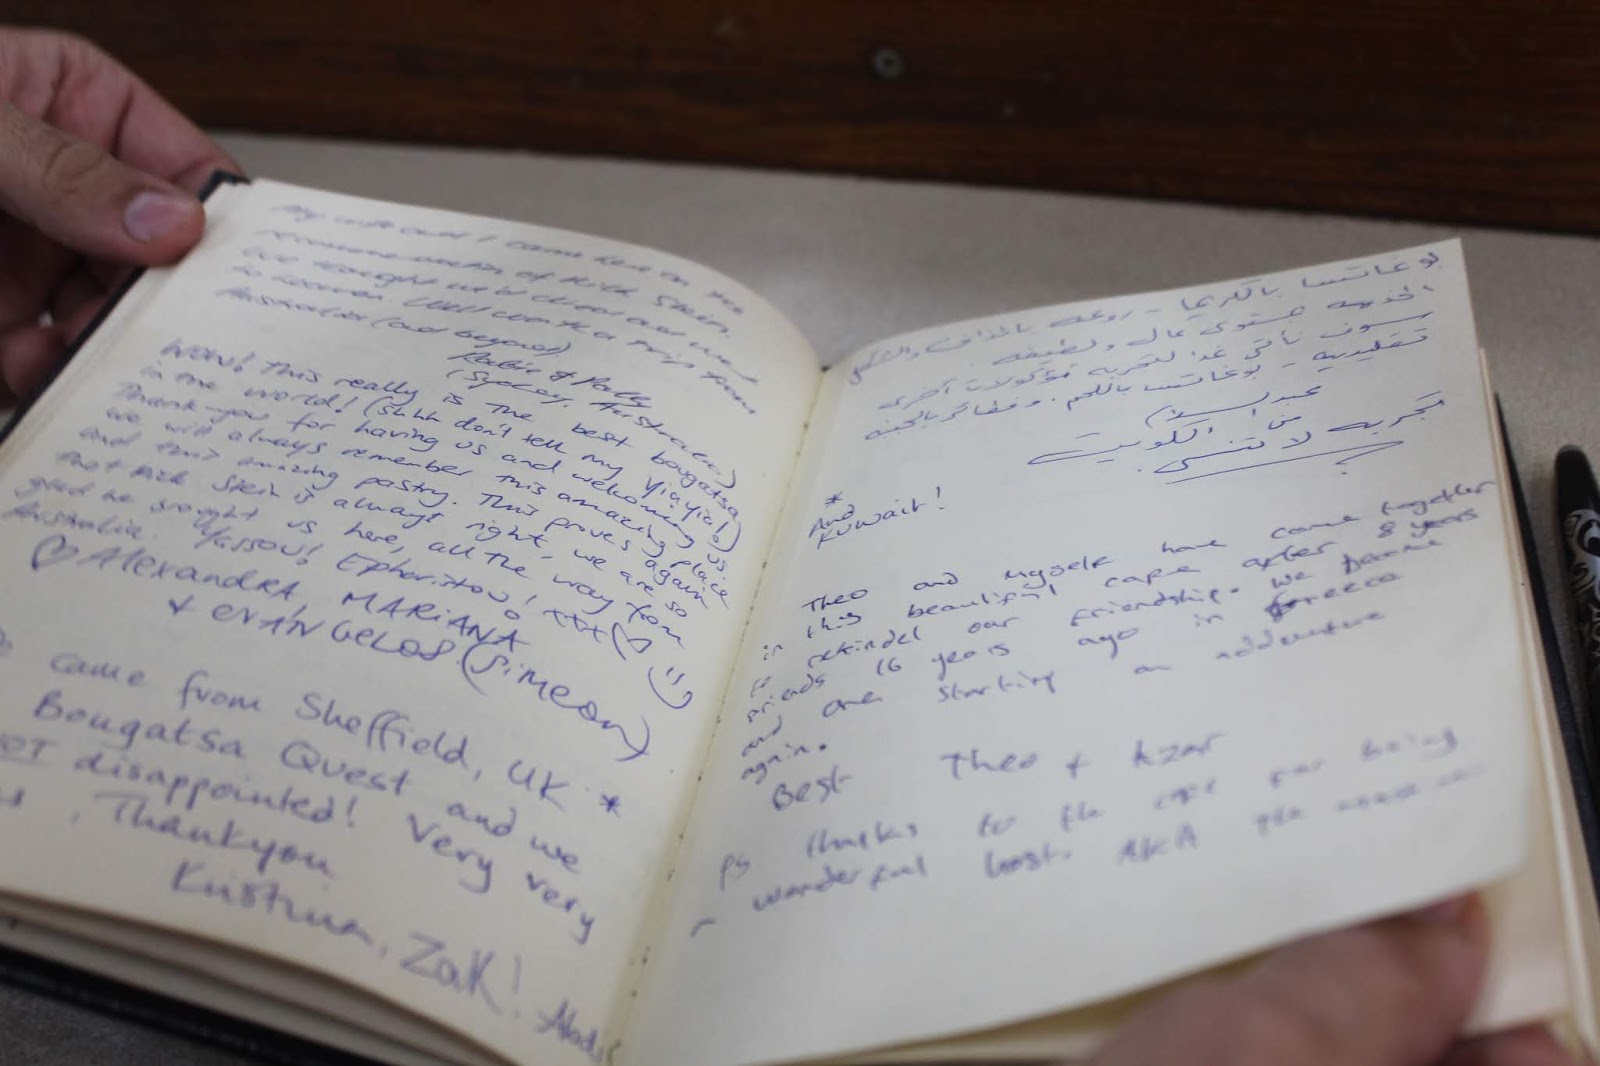 My wife and I came here on the
recommendation of Rick Stein.
We thought we'd
so Well worth a trip from
Australia (and beyond).
(Sydney, Australia)
WOW! This really is the best bougatsa
in the world! (Shhh don't tell my yiayia!)
Thank-you for having us and welcoming us,
we will always remember this amazing place
and this amazing pastry. This proves again
that Rick Stein is always right, we are so
glad he brought us here, all the way from
Australia. Yiassou! Epharistow! xxx♡
♡ ALEXANDRA, MARIANA
+ EVANGELOS. (Simeon)
came from Sheffield, UK *
Bougatsa Quest and we
NOT disappointed! Very very
, Thankyou
Zak!
بوغاتسا بالكريما - روعة بالمذاق والشكل
الخدمة مستوى عالي ولطيفة.
سوف نأتي غداً لتجربة مأكولات أخرى
تقليدية - بوغاتسا باللحم. وفطائر بالجبنة
عبدالسلام
من الكويت
تجربة لا تنسى.
*
And
KUWAIT!
Theo and myself have come together
in this beautiful cafe after 8 years
to rekindel our friendship. We became
friends 16 years ago in Greece
and are starting an adventure
again.
Best Theo + Azar
PS thanks to the cafe for being
wonderful host. AKA the